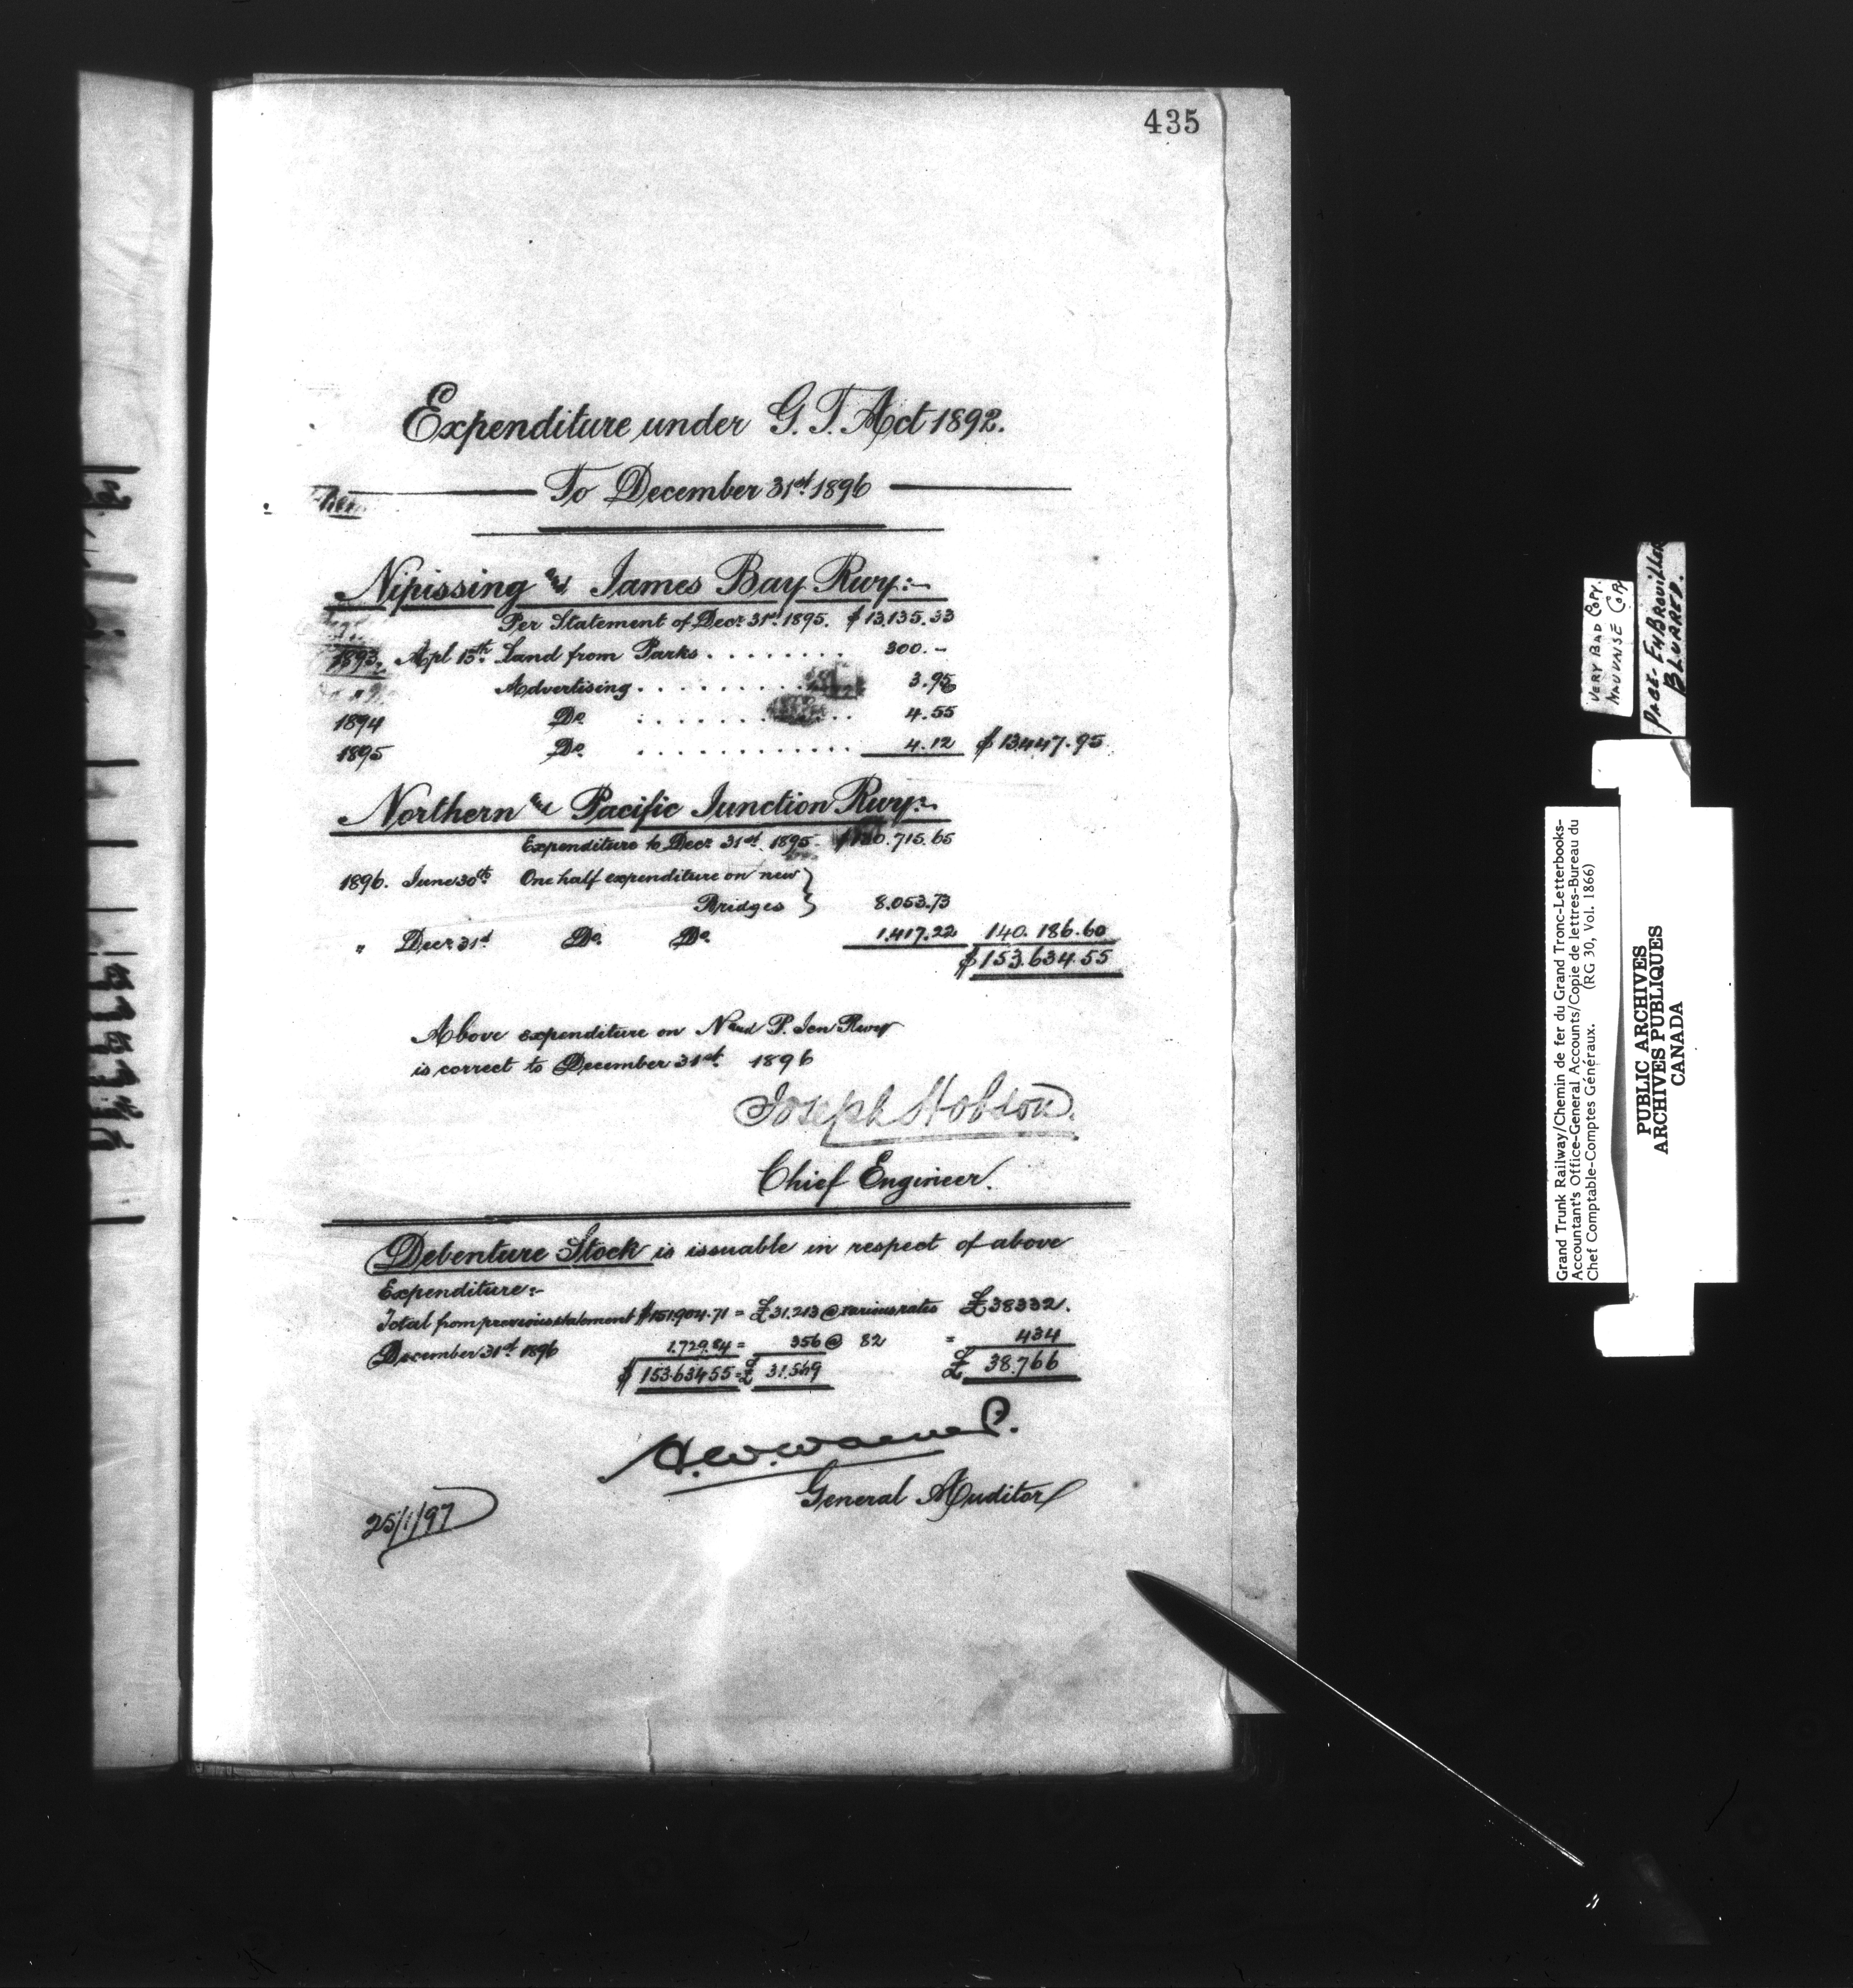 435
Expenditure under G. T. Act 1892.
To December 31st 1896
Nipissing and James Bay Rwy:-
Per Statement of Decr. 31st 1895. $13,135.33
1893. Apl 15th Land from Parks . . . . . . . . 300.-
Advertising . . . . . . . . . 3.95
1894 Do . . . . . . . . . 4.55
1895 Do . . . . . . . . . . . . . 4.12 $13447.95
Northern and Pacific Junction Rwy:-
Expenditure to Decr. 31st 1895. $130.715.65
1896. June 30th One half expenditure on new
Bridges } 8.053.73
" Decr. 31st Do. Do. 1.417.22 140.186.60
$153.634.55
Above expenditure on N and P. Jcn Rwy
is correct to December 31st. 1896
Joseph Hobson.
Chief Engineer.
Debenture Stock is issuable in respect of above
Expenditure:-
Total from previous statement $151.904.71 = £31.213 @ various rates £38332.
December 31st 1896 1.729.84 = 356 @ 82 = 434
$153.634.55 = £ 31.569 £ 38.766
H. W. Walker.
General Auditor
25/1/97
VERY BAD COPY.
MAUVAISE COPY
PAGE-EMBROUILLER
BLURRED.
Grand Trunk Railway/Chemin de fer du Grand Tronc-Letterbooks-
Accountant's Office-General Accounts/Copie de lettres-Bureau du
Chef Comptable-Comptes Généraux. (RG 30, Vol. 1866)
PUBLIC ARCHIVES
ARCHIVES PUBLIQUES
CANADA